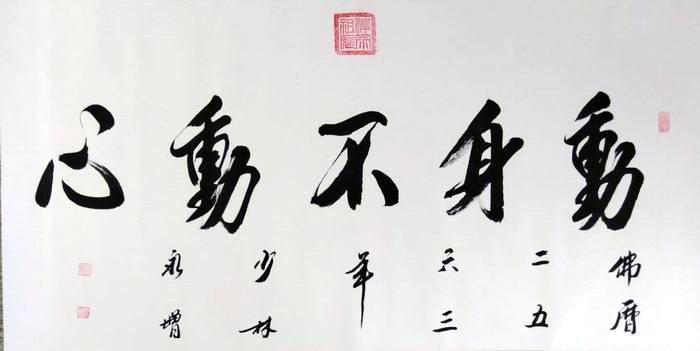 動身不動心
佛曆
二五
六三
年
少林
永增